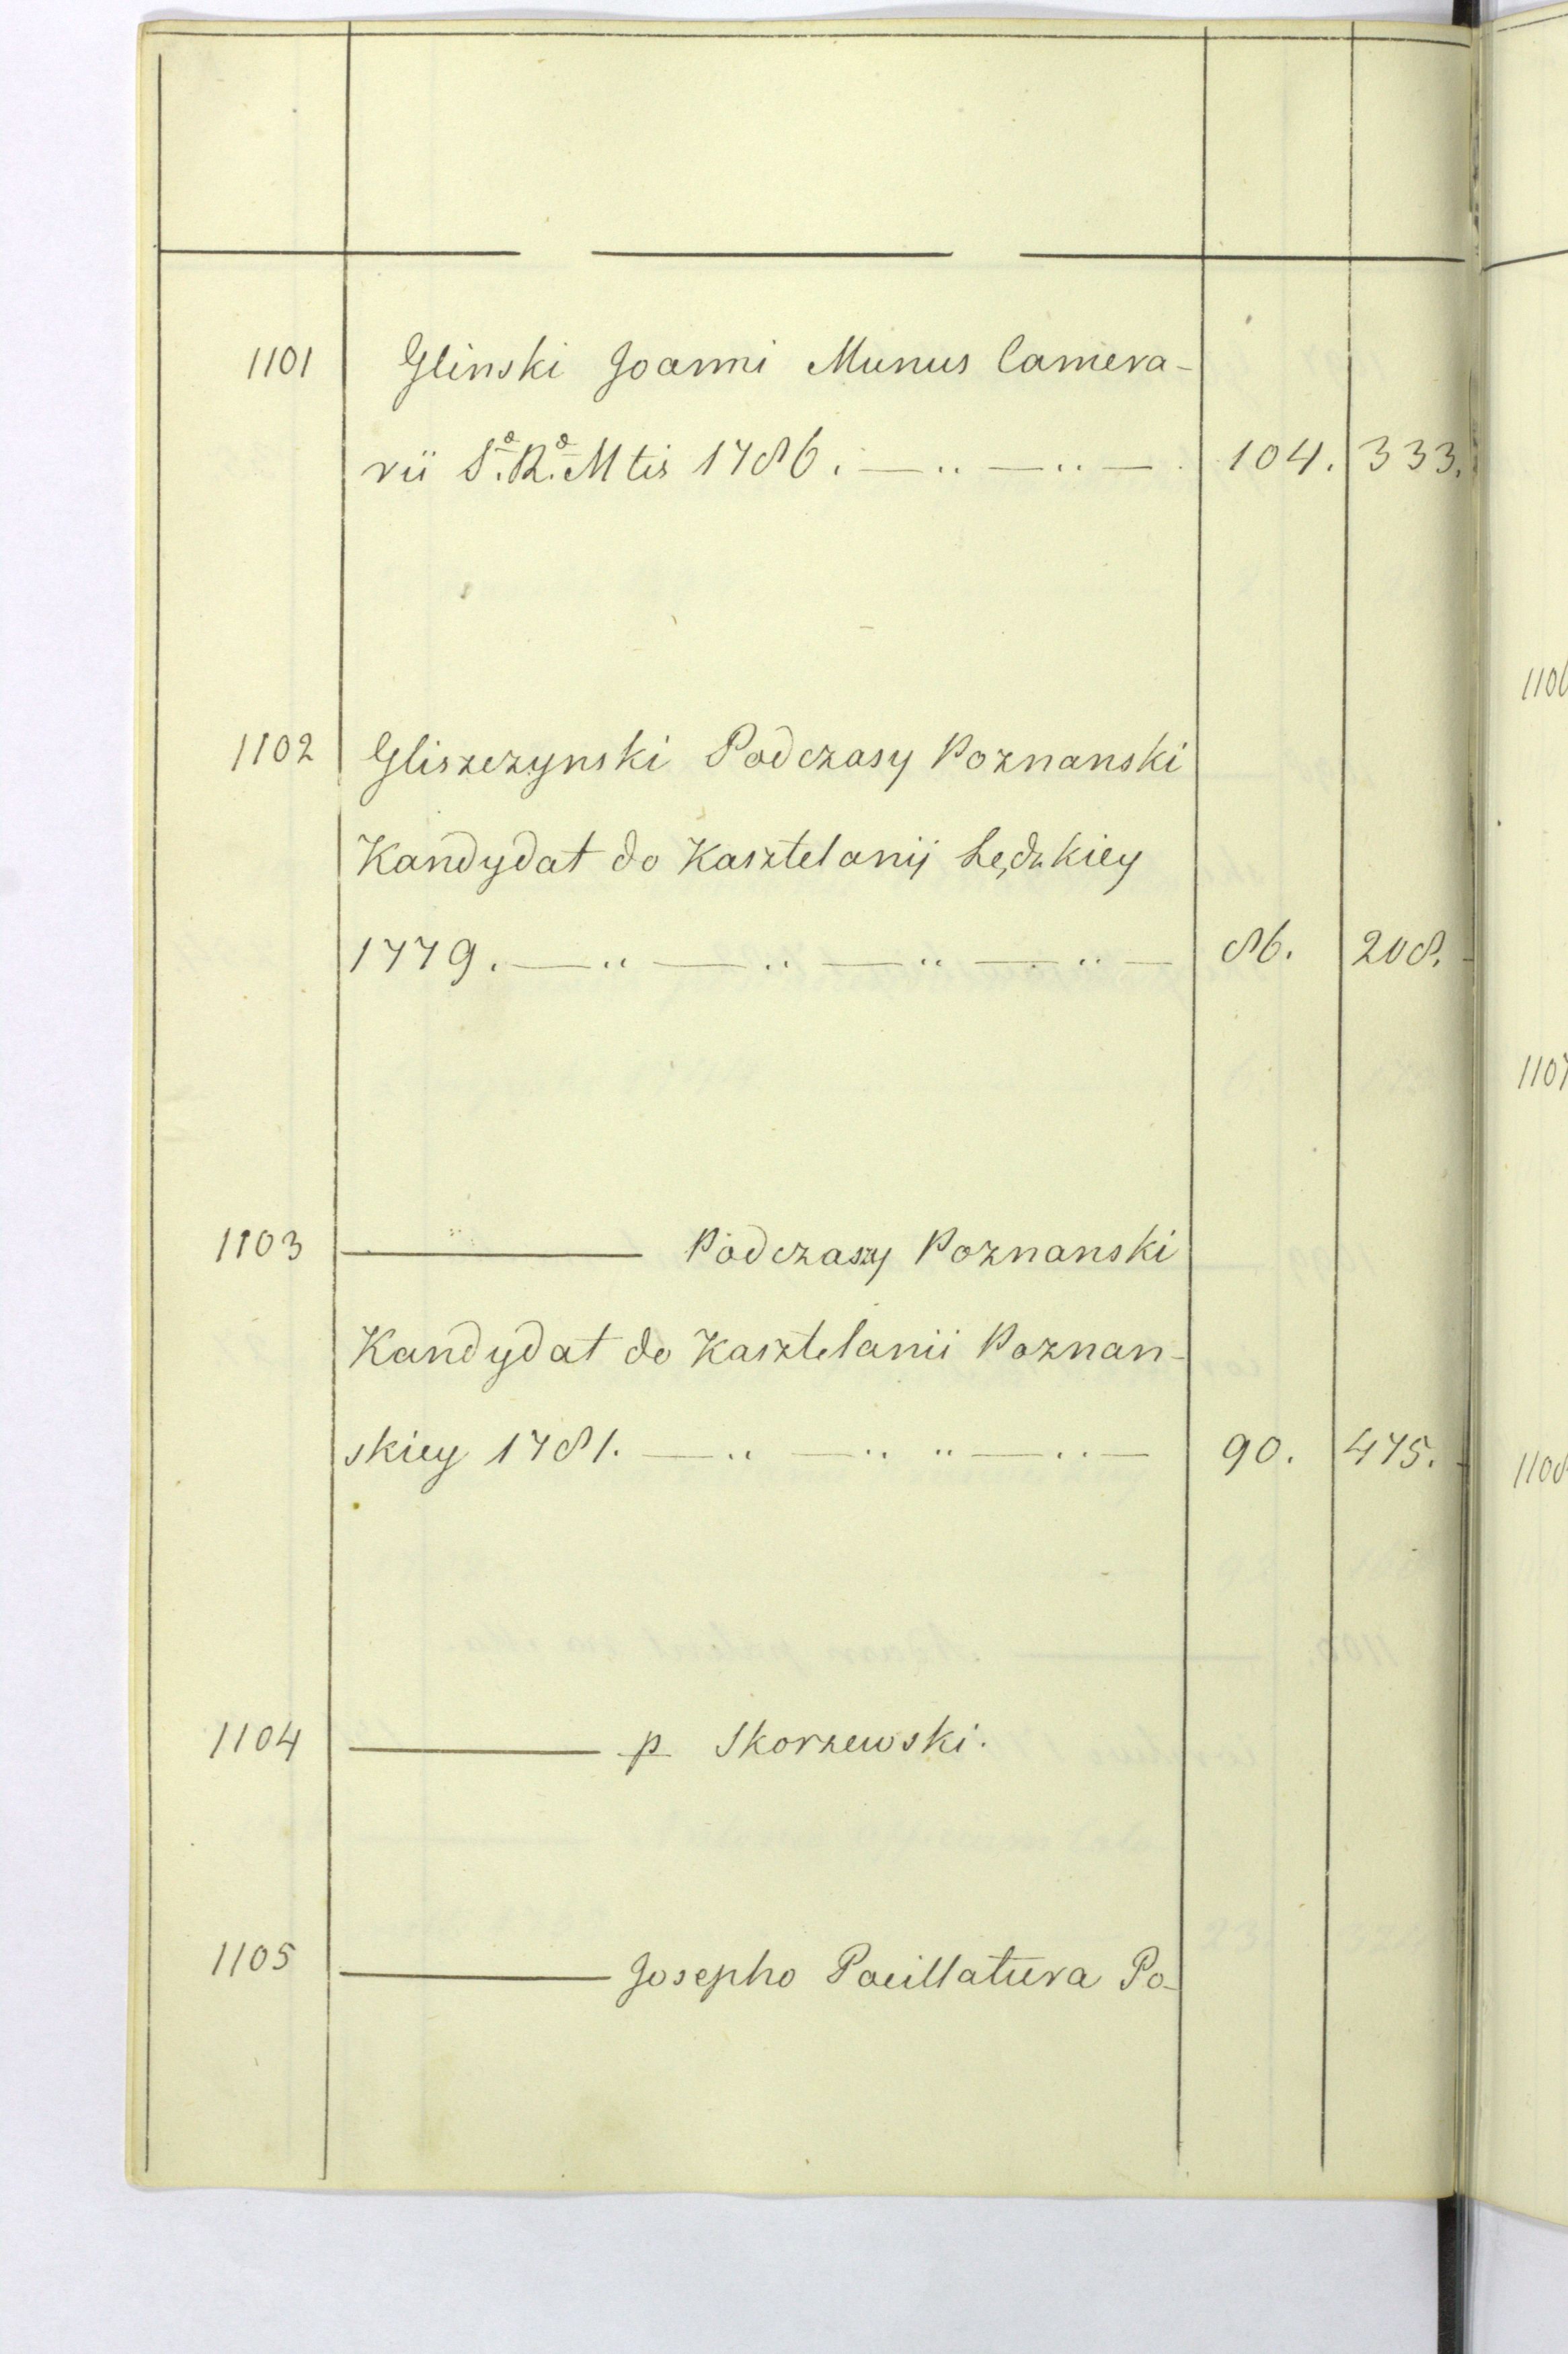 1101 Glinski Joanni Munus Camera-
rii S.ª R.ª Mtis 1786. — .. — .. — . 104. 333.
1102 Gliszczynski Podczasy Poznanski
Kandydat do Kasztelanij Lędzkiey
1779. — .. — .. — .. — .. — 86. 208.
1103 — Podczaszy Poznanski
Kandydat do Kasztelanii Poznan-
skiey 1781. — .. — .. .. — .. — 90. 475.
1104 — p Skorzewski.
1105 — Josepho Pocillatura Po-
1107